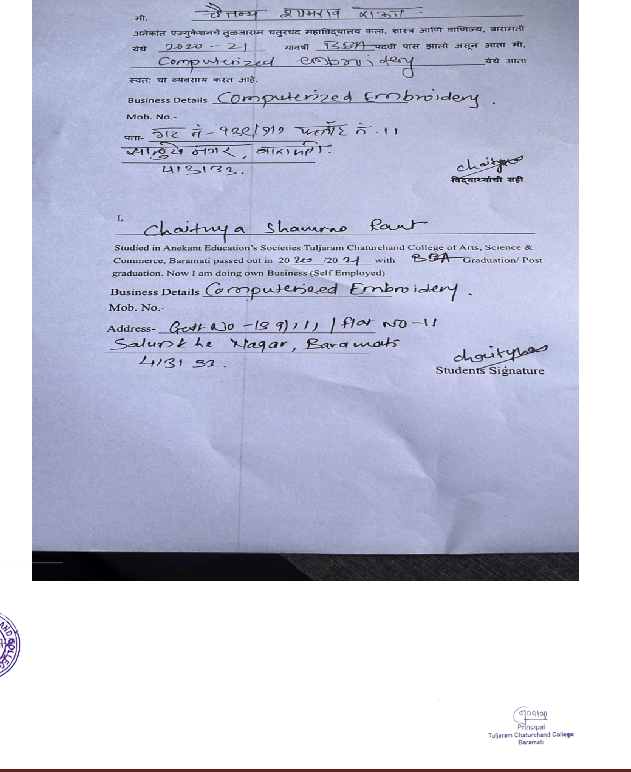 मी, चैतन्य शामराव राऊत
अनेकांत एज्युकेशनचे तुळजाराम चतुरचंद महाविद्यालय कला, शास्त्र आणि वाणिज्य, बारामती
येथे 2020-21 यावर्षी BBA पदवी पास झालो असून आता मी,
Computerized embroidery येथे आता
स्वतः चा व्यवसाय करत आहे.
Business Details Computerized Embroidery.
Mob. No.-
पत्ता- गट नं- फ्लॅट नं. 11
साळुंखे नगर, बारामती.
विद्यार्थ्याची सही
I,
Chaitnya Shamrao Raut
Studied in Anekant Education's Societies Tuljaram Chaturchand College of Arts, Science &
Commerce, Baramati passed out in 2020 /2021 with BBA Graduation/ Post
graduation. Now I am doing own Business (Self Employed)
Business Details Computerized Embroidery.
Mob. No.-
Address- Gatt No - / flat No-11
Salunkhe Nagar, Baramati
Students Signature
Principal
Tuljaram Chaturchand College
Baramati